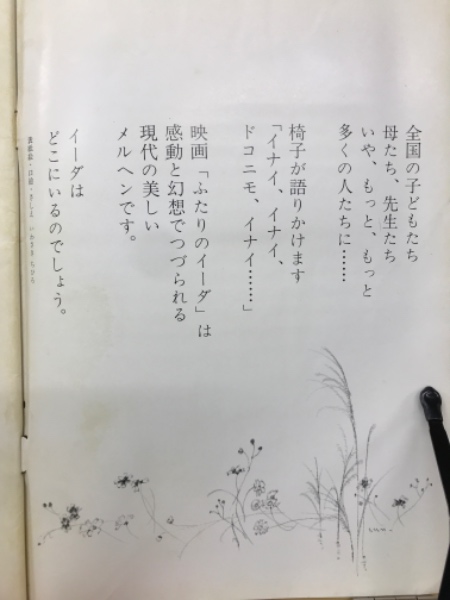 全国の子どもたち
母たち、先生たち
いや、もっと、もっと
多くの人たちに……
椅子が語りかけます
「イナイ、イナイ、
ドコニモ、イナイ……」
映画「ふたりのイーダ」は
感動と幻想でつづられる
現代の美しい
メルヘンです。
イーダは
どこにいるのでしょう。
表紙絵・口絵・さしえ いわさき ちひろ